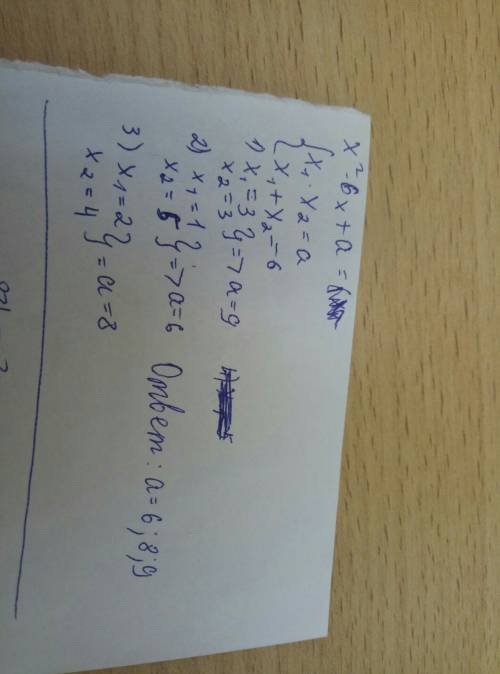 x² - 6x + a =
{ x₁ · x₂ = a
x₁ + x₂ = 6
1) x₁ = 3
x₂ = 3 } => a = 9
2) x₁ = 1
x₂ = 5 } => a = 6
3) x₁ = 2
x₂ = 4 } = a = 8
Ответ: a = 6; 8; 9